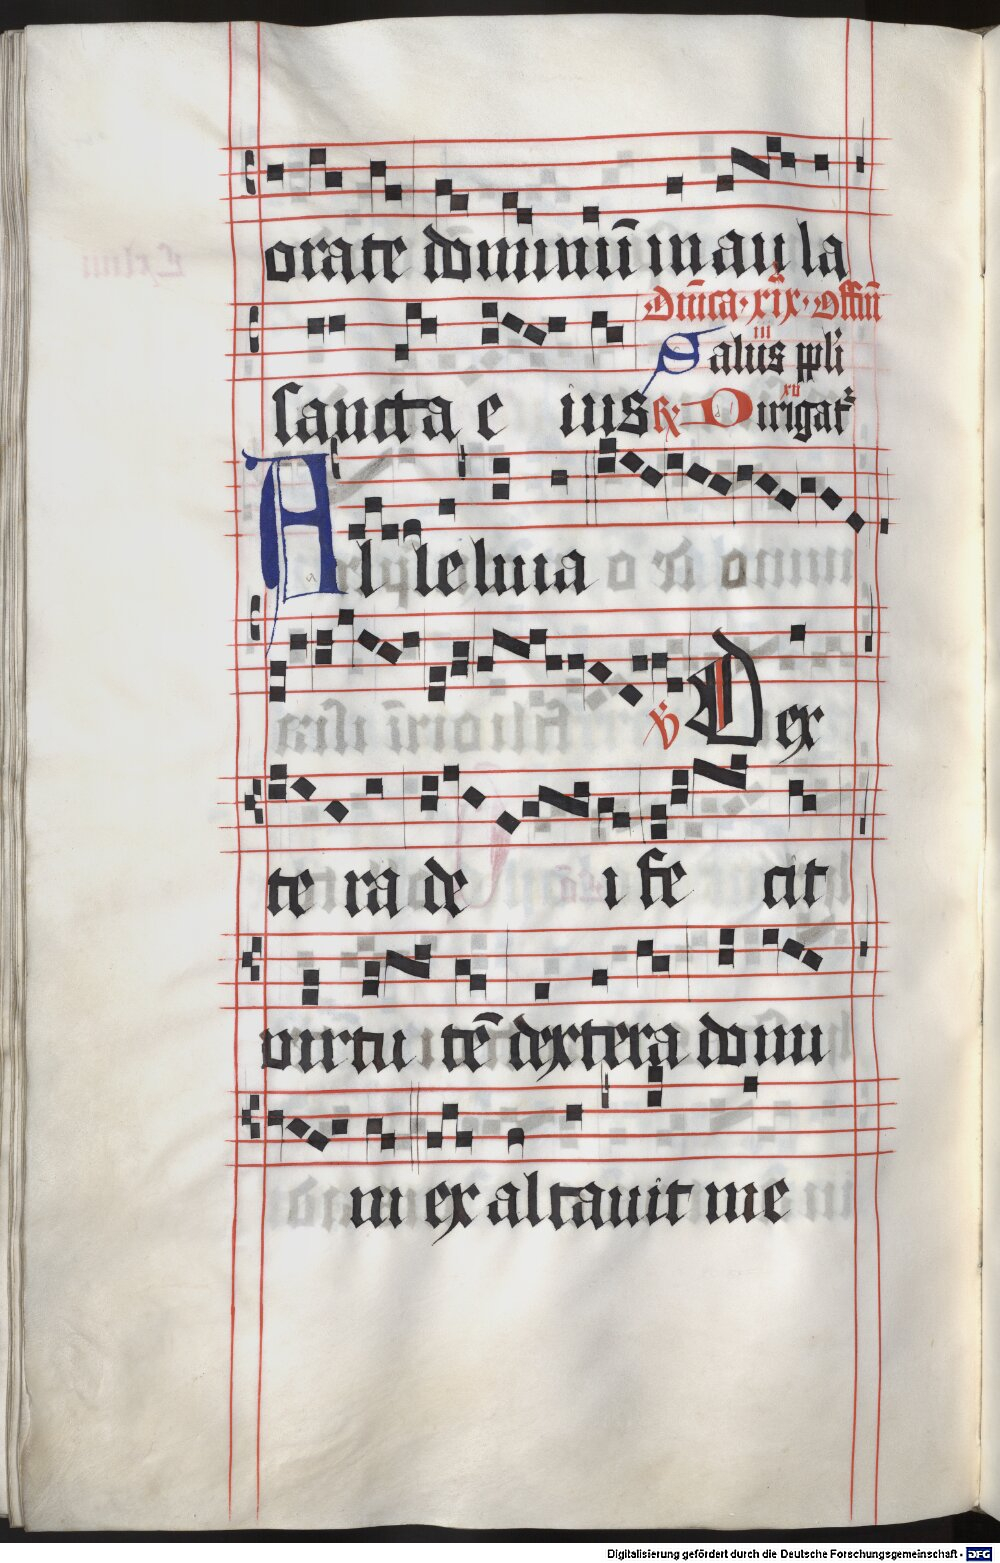 orate dominū in aula
Dn̄ica · xix · Offm̄
sancta e ius
iii
Salus ppli
xii
R Dirigat̄
Alleluia
V Dex
te ra de i fe cit
virtu tē dextera domi
ni ex altauit me
Digitalisierung gefördert durch die Deutsche Forschungsgemeinschaft - DFG